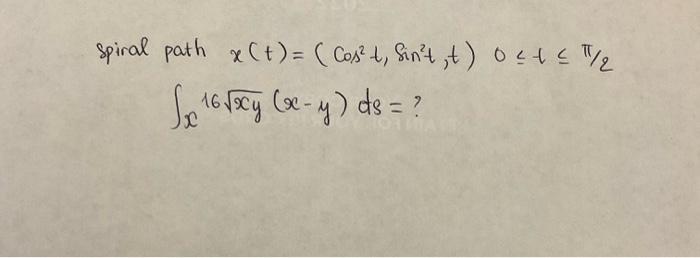 spiral path x(t) = (Cos²t, Sin²t, t) 0 ≤ t ≤ π/2
∫ₓ 16√xy (x-y) ds = ?